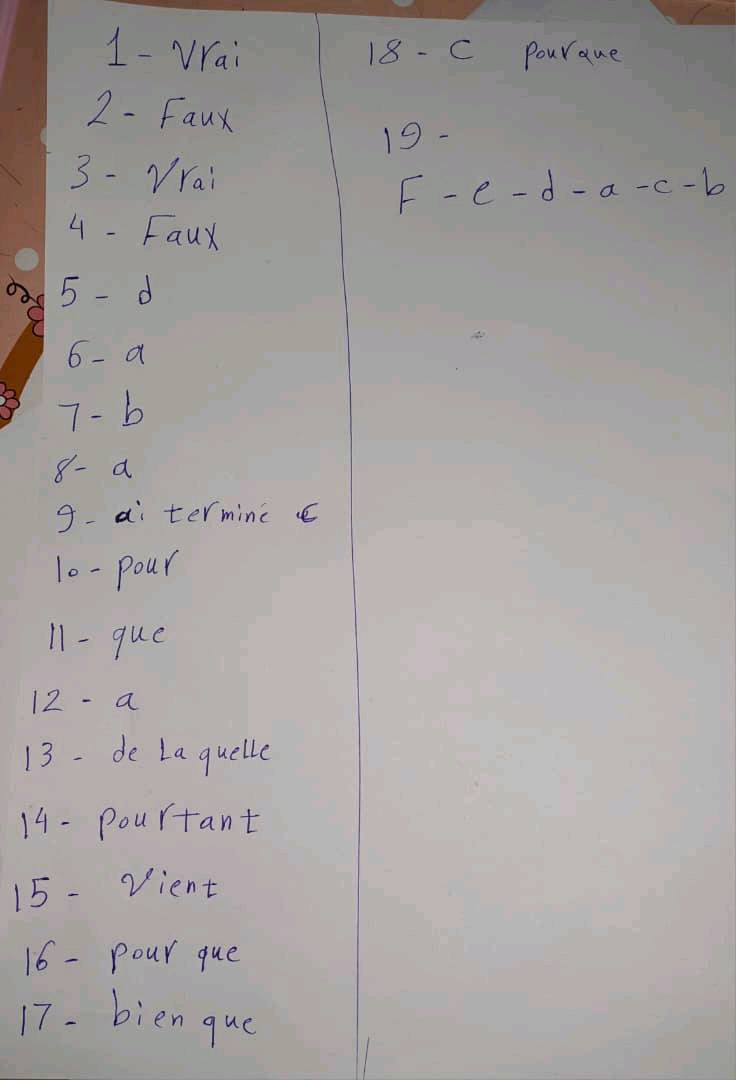 1 - Vrai
2 - Faux
3 - Vrai
4 - Faux
5 - d
6 - a
7 - b
8 - a
9 - ai terminé c
10 - pour
11 - que
12 - a
13 - de Laquelle
14 - pourtant
15 - Vient
16 - pour que
17 - bien que
18 - C pourque
19 -
F - e - d - a - c - b